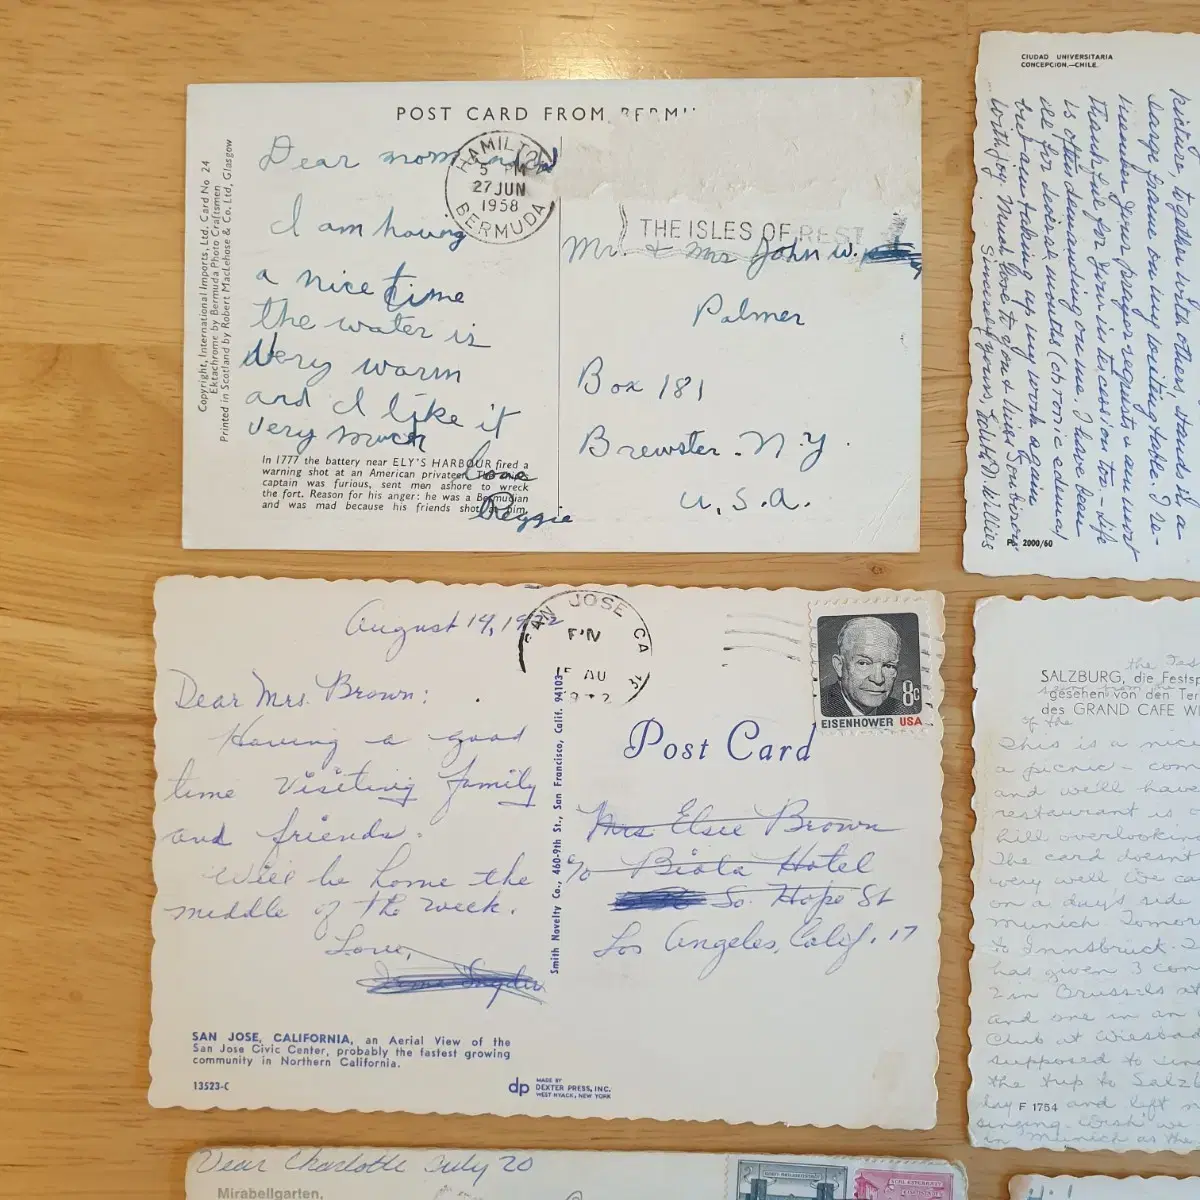 POST CARD FROM BERMU
Copyright, International Imports, Ltd. Card No 24
Ektachrome by Bermuda Photo Craftsmen
Printed in Scotland by Robert MacLehose & Co. Ltd, Glasgow
Dear mom
HAMILTON
5 PM
27 JUN
1958
BERMUDA
THE ISLES OF REST
I am having
a nice time
the water is
very warm
and I like it
very much
love
Reggie
In 1777 the battery near ELY'S HARBOUR fired a
warning shot at an American privateer. The
captain was furious, sent men ashore to wreck
the fort. Reason for his anger: he was a Bermudian
and was mad because his friends shot at him.
Mr. & Mrs John W.
Palmer
Box 181
Brewster - N.Y.
U.S.A.
CIUDAD UNIVERSITARIA
CONCEPCION.—CHILE.
picture, together with others, stands in a
large frame on my writing table. I re-
member your prayer requests & am most
thankful for your intercession too - life
is often demanding on me. I have been
ill for months (chronic
but am taking up my work again
Must love to you & Miss
Sincerely yours,
2000/60
August 14, 1972
SAN JOSE CA
PM
15 AU
1972
8c
EISENHOWER USA
Dear Mrs. Brown:
Having a good
time visiting family
and friends.
Will be home the
middle of the week.
Love,
Smith Novelty Co., 460-9th St., San Francisco, Calif. 94103
Post Card
Mrs Elsie Brown
c/o Biola Hotel
So. Hope St
Los Angeles, Calif. 17
SAN JOSE, CALIFORNIA, an Aerial View of the
San Jose Civic Center, probably the fastest growing
community in Northern California.
13523-C
dp
MADE BY
DEXTER PRESS, INC.
WEST NYACK, NEW YORK
SALZBURG, die Festsp
gesehen von den Ter
des GRAND CAFE WI
of the
This is a nice
a picnic - com
and we'll have
restaurant is
hill overlookin
The card doesn't
very well. We ca
on a days side
Munich. Tomor
to Innsbruck.
has given 3 con
2 in Brussels at
and one in an
Club at Wiesba
supposed to sin
the trip to Salz
day F 1754 and left
singing. Wish we
in Munich as the
Dear Charlotte July 20
Mirabellgarten,